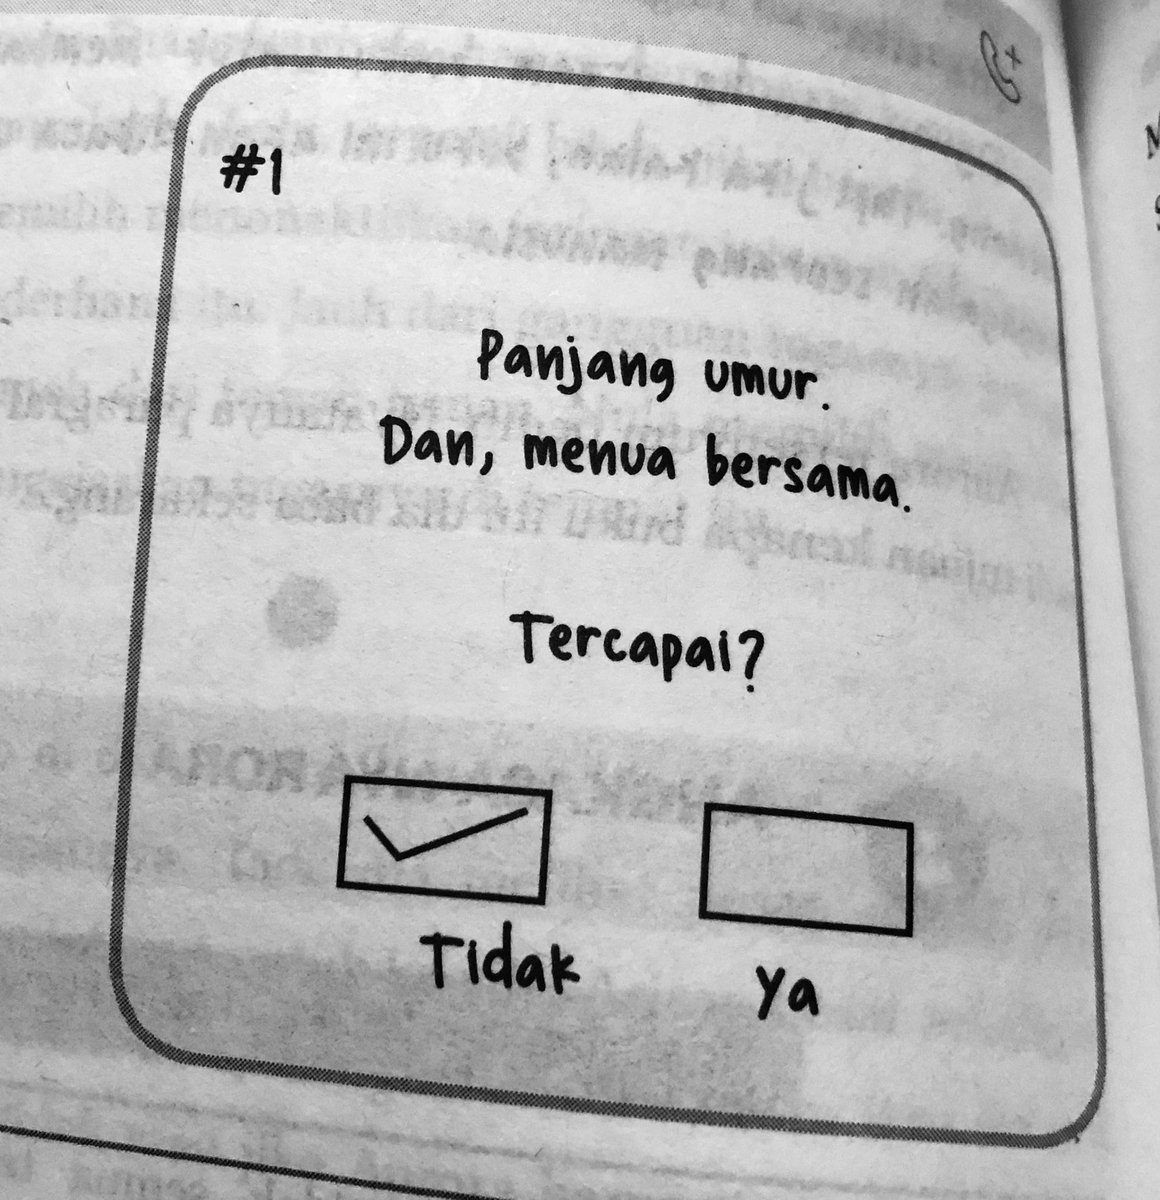 #1
Panjang umur.
Dan, menua bersama.
Tercapai?
Tidak
Ya